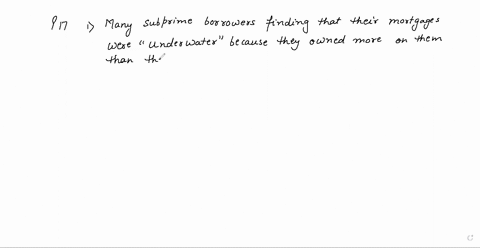 917 1) Many subprime borrowers finding that their mortgages
were "underwater" because they owned more on them
than th